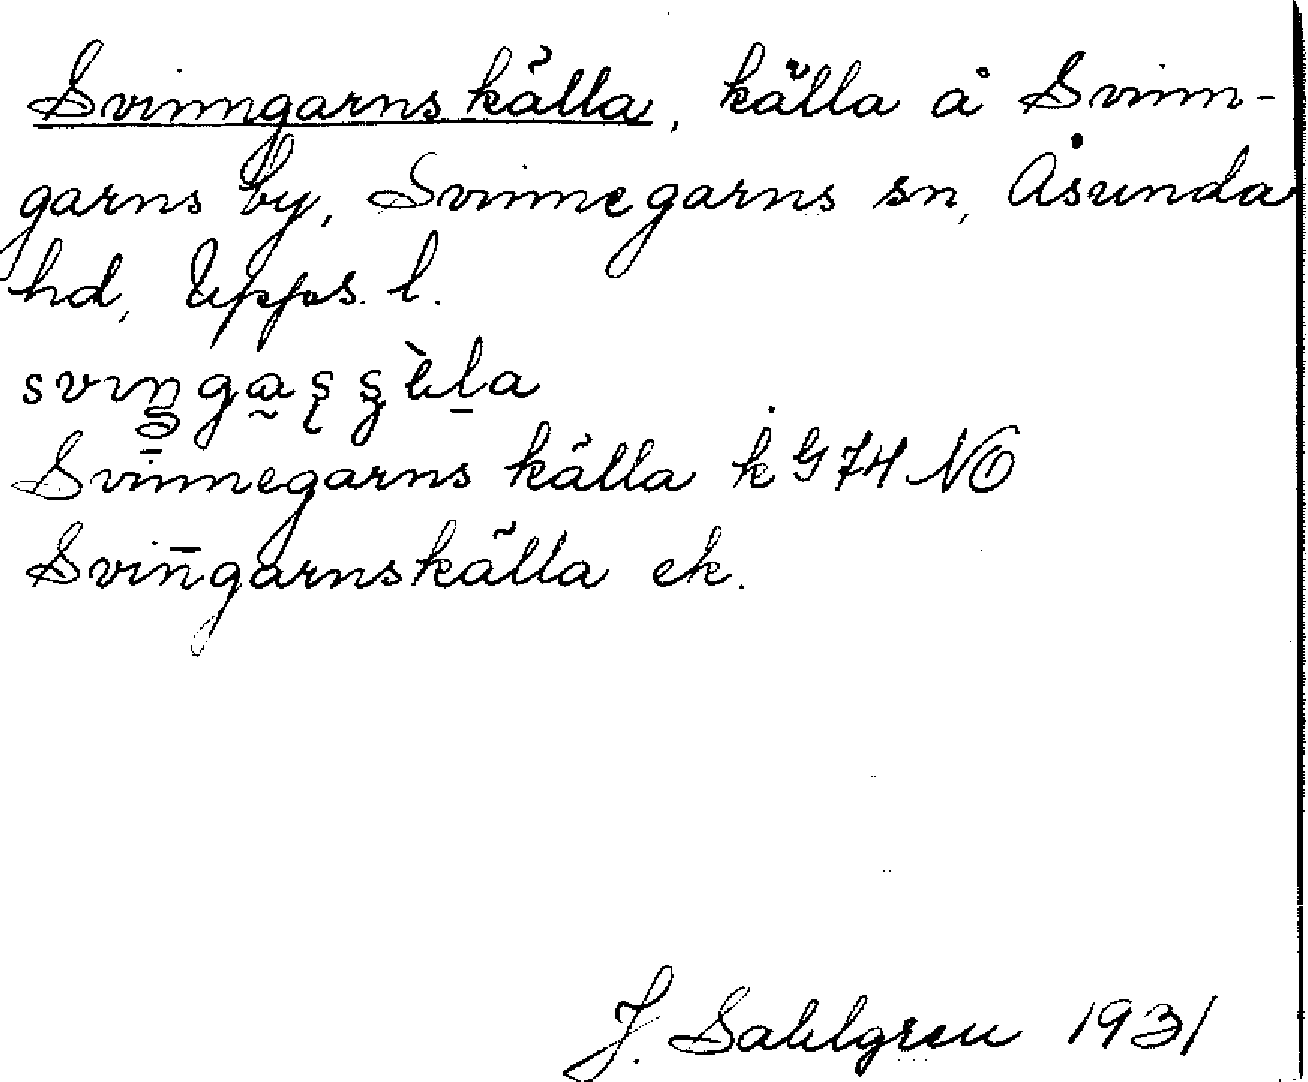 Svinngarns källa, källa å Svinn-
garns by, Svinnegarns sn, Åsunda
hd, Upps. l.
Svinnegarns källa k G 74 NO
Sviñgarnskälla ek.
J. Sahlgren 1931